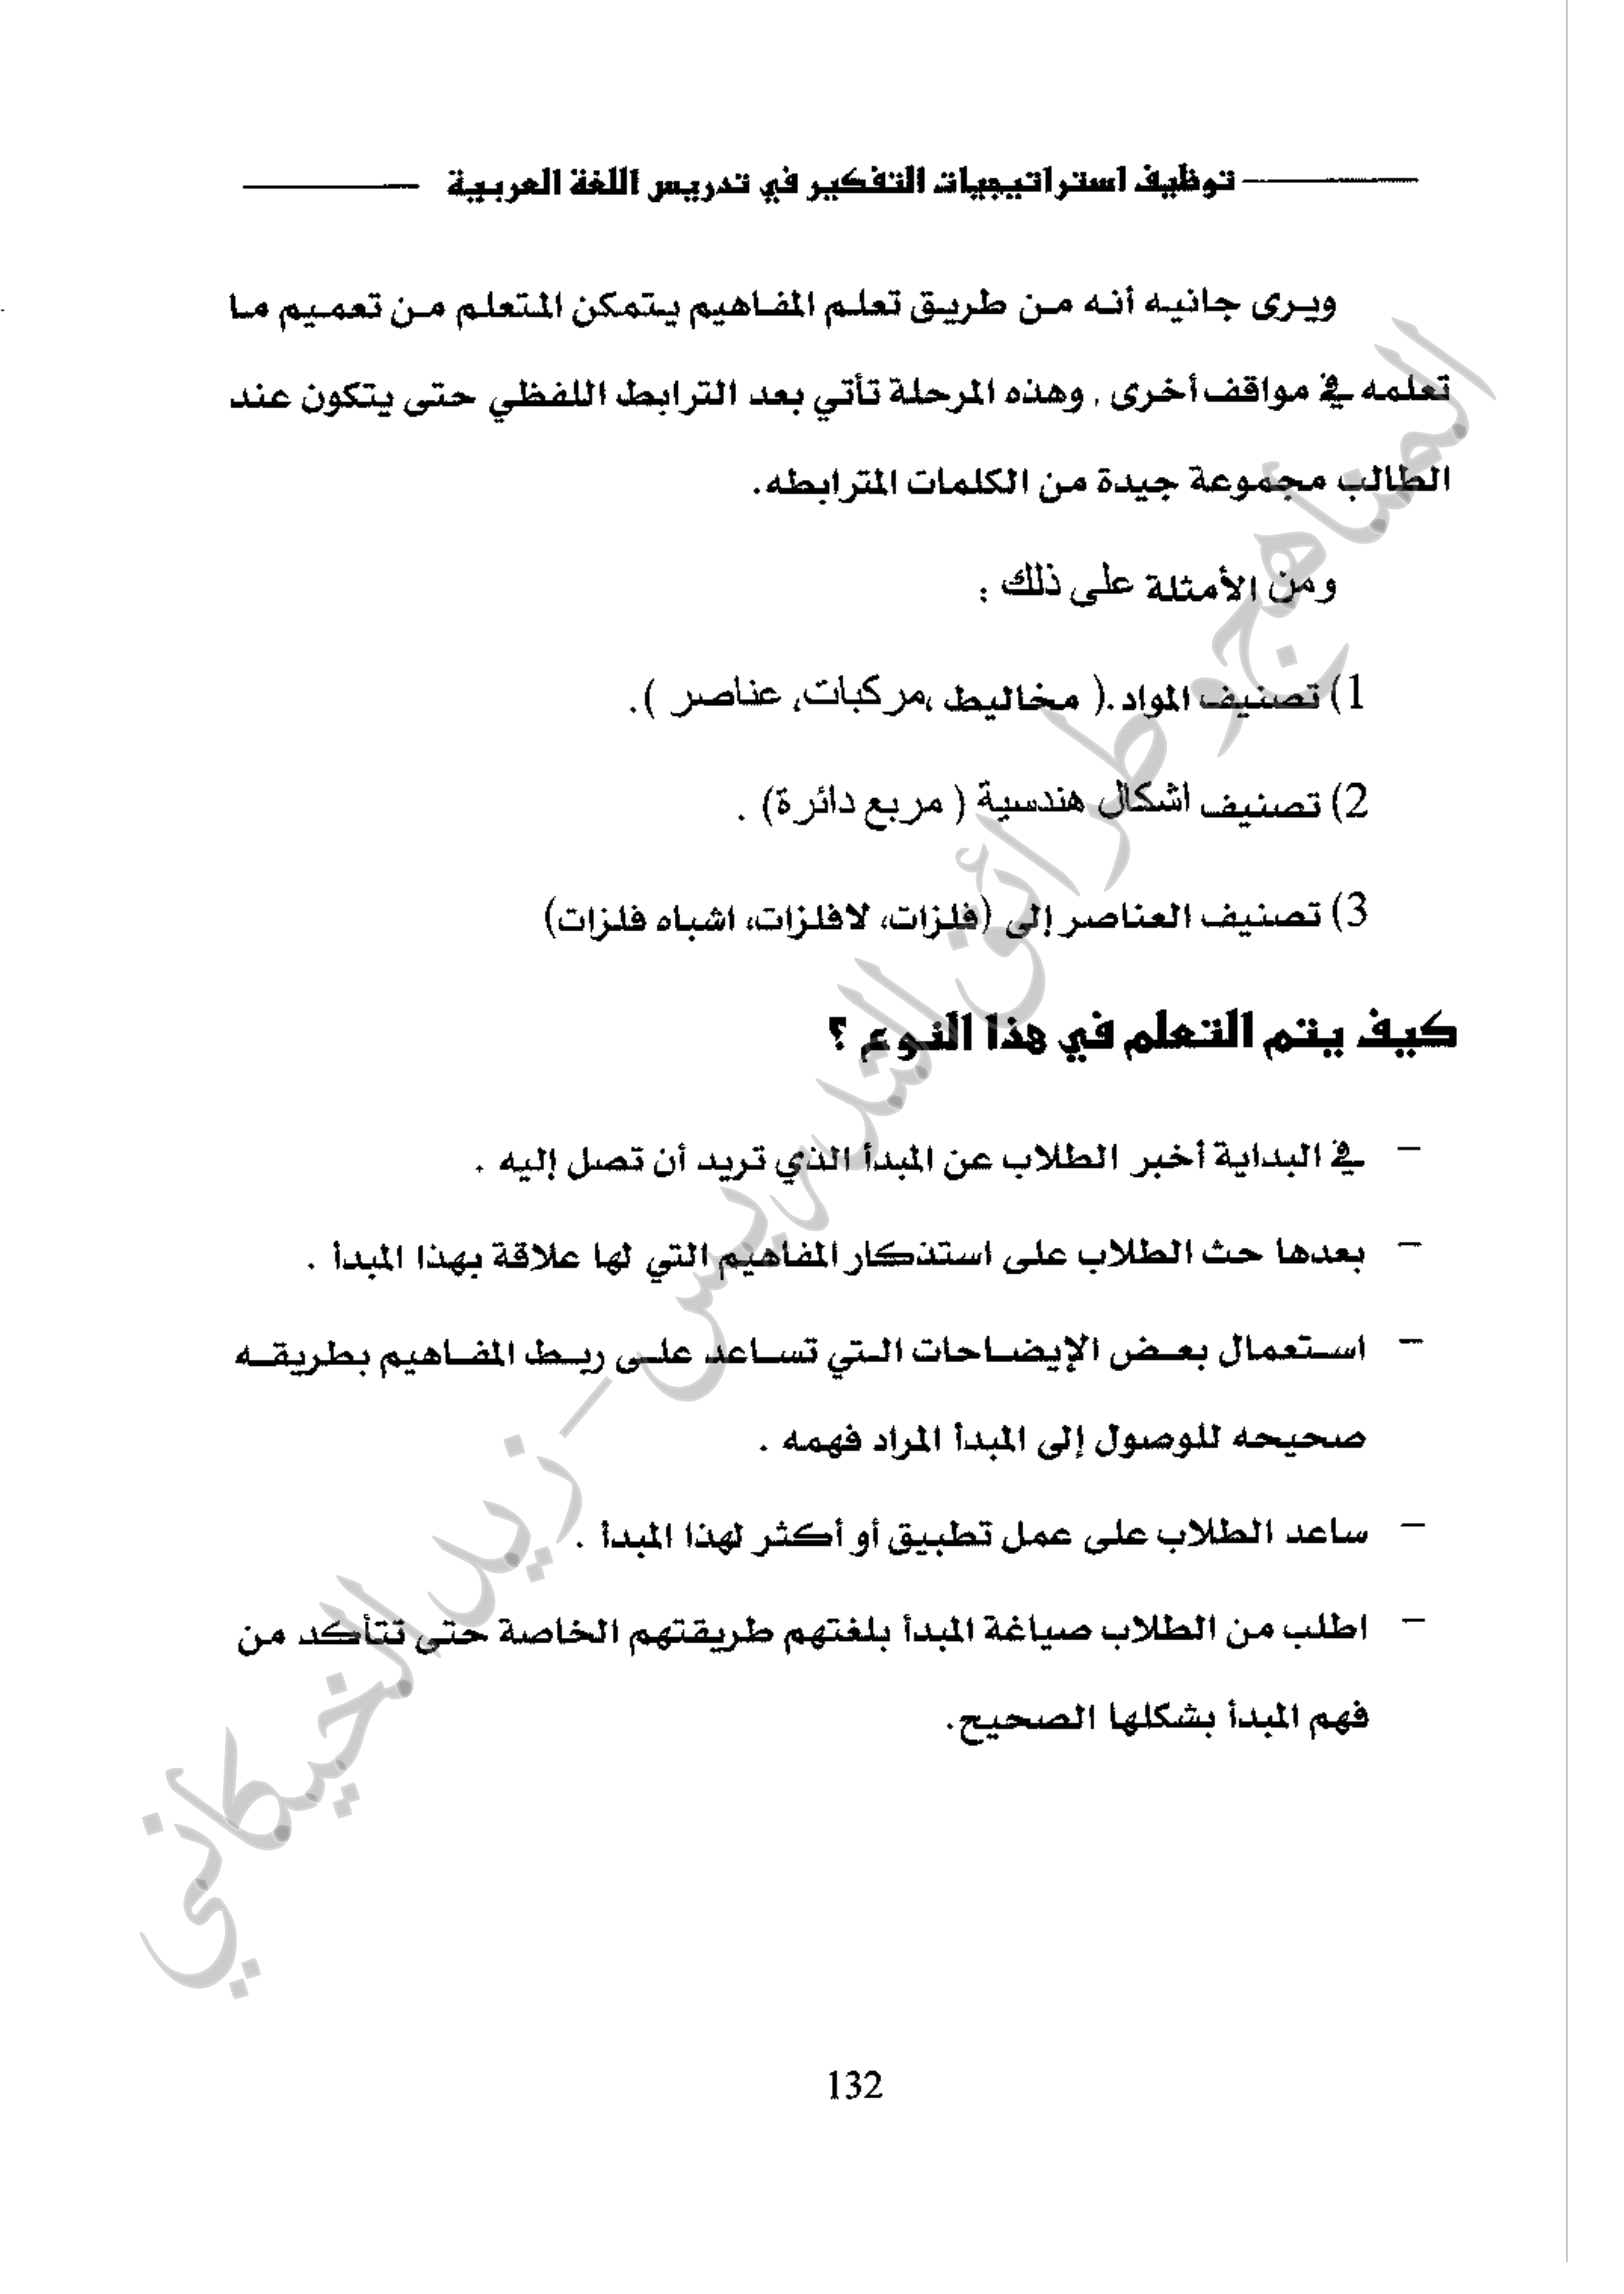 توظيف استراتيجيات التفكير في تدريس اللغة العربية
ويرى جانيه أنه من طريق تعلم المفاهيم يتمكن المتعلم من تعميم ما
تعلمه في مواقف أخرى . وهذه المرحلة تأتي بعد الترابط اللفظي حتى يتكون عند
الطالب مجموعة جيدة من الكلمات المترابطه.
ومن الأمثلة على ذلك :
1) تصنيف المواد .( مخاليط ،مركبات، عناصر ).
2) تصنيف اشكال هندسية ( مربع دائرة) .
3) تصنيف العناصر إلى (فلزات، لافلزات، اشباه فلزات)
كيف يتم التعلم في هذا النوع ؟
– في البداية أخبر الطلاب عن المبدأ الذي تريد أن تصل إليه .
– بعدها حث الطلاب على استذكار المفاهيم التي لها علاقة بهذا المبدأ .
– استعمال بعض الإيضاحات التي تساعد على ربط المفاهيم بطريقه
صحيحه للوصول إلى المبدأ المراد فهمه .
– ساعد الطلاب على عمل تطبيق أو أكثر لهذا المبدأ .
– اطلب من الطلاب صياغة المبدأ بلغتهم طريقتهم الخاصة حتى تتأكد من
فهم المبدأ بشكلها الصحيح.
المناهج وطرائق التدريس – زيد الخيكاني
132